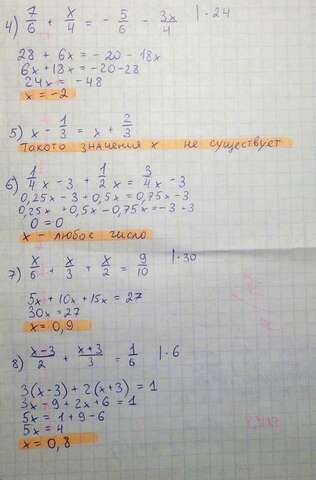 4) 7/6 + x/4 = - 5/6 - 3x/4 |·24
28 + 6x = - 20 - 18x
6x + 18x = - 20 - 28
24x = - 48
x = - 2
5) x - 1/3 = x + 2/3
Такого значения x не существует
6) 1/4 x - 3 + 1/2 x = 3/4 x - 3
0,25x - 3 + 0,5x = 0,75x - 3
0,25x + 0,5x - 0,75x = -3 + 3
0 = 0
x - любое число
7) x/6 + x/3 + x/2 = 9/10 |·30
5x + 10x + 15x = 27
30x = 27
x = 0,9
8) x-3/2 + x+3/3 = 1/6 |·6
3(x-3) + 2(x+3) = 1
3x - 9 + 2x + 6 = 1
5x = 1 + 9 - 6
5x = 4
x = 0,8